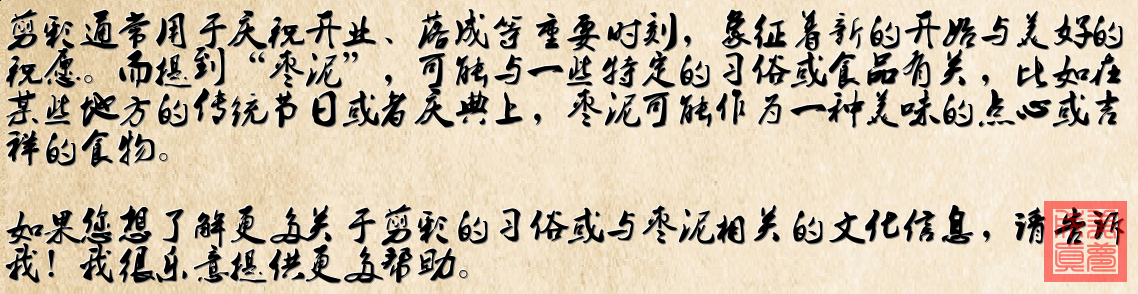 剪彩通常用于庆祝开业、落成等重要时刻，象征着新的开始与美好的
祝愿。而提到“枣泥”，可能与一些特定的习俗或食品有关，比如在
某些地方的传统节日或者庆典上，枣泥可能作为一种美味的点心或吉
祥的食物。
如果您想了解更多关于剪彩的习俗或与枣泥相关的文化信息，请告诉
我！我很乐意提供更多帮助。